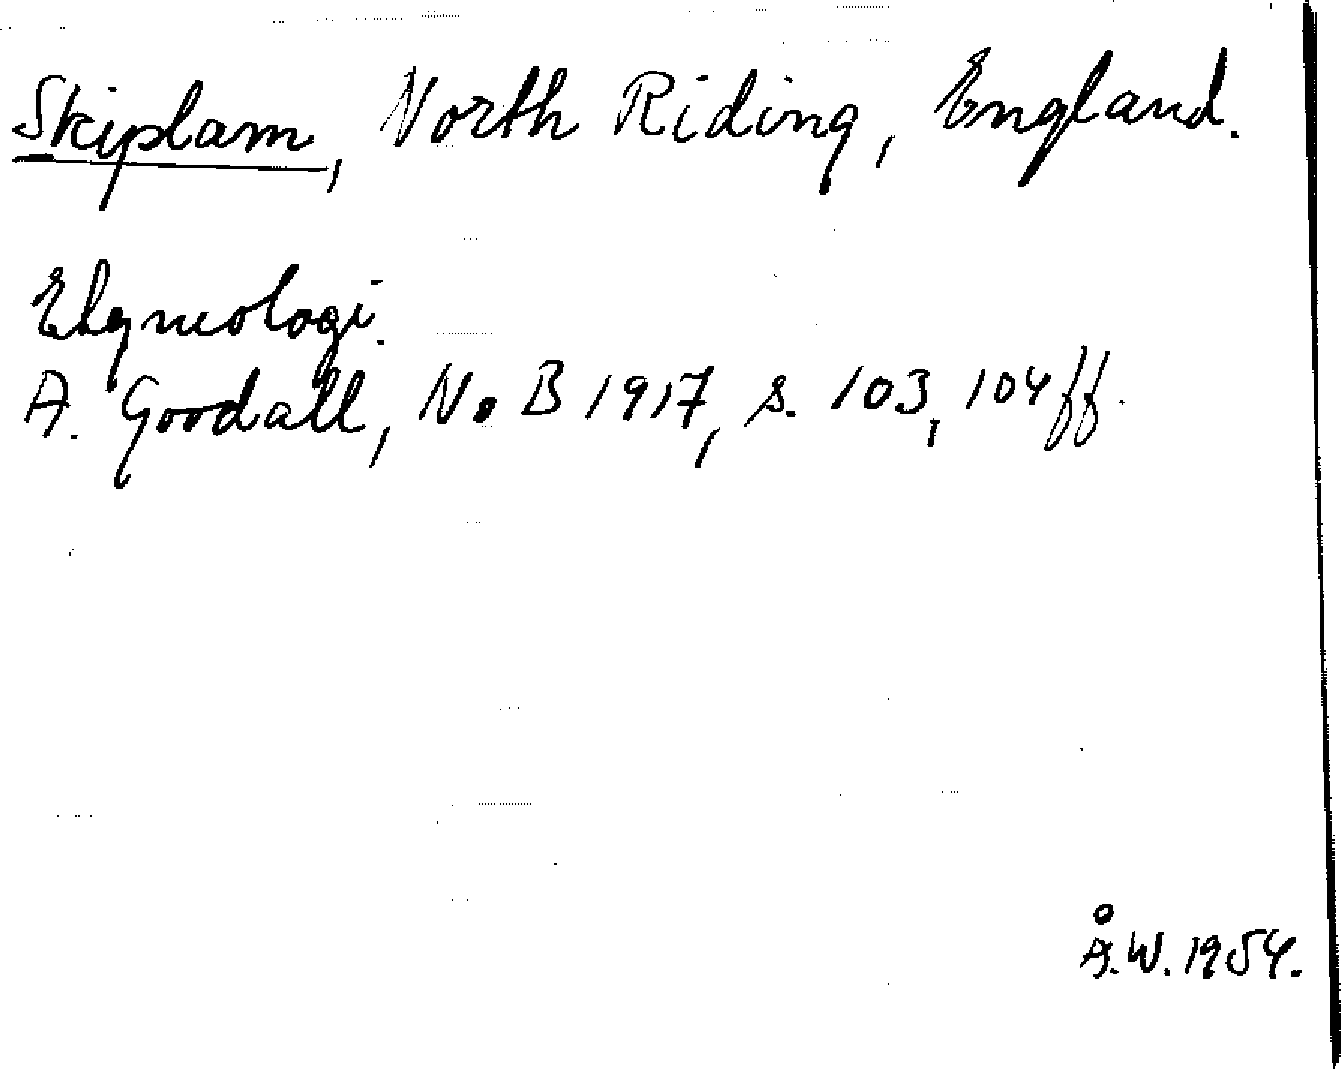 Skiplam, North Riding, England.
Etymologi.
A. Goodall, NoB 1917, s. 103, 104 ff.
Å.W. 1954.